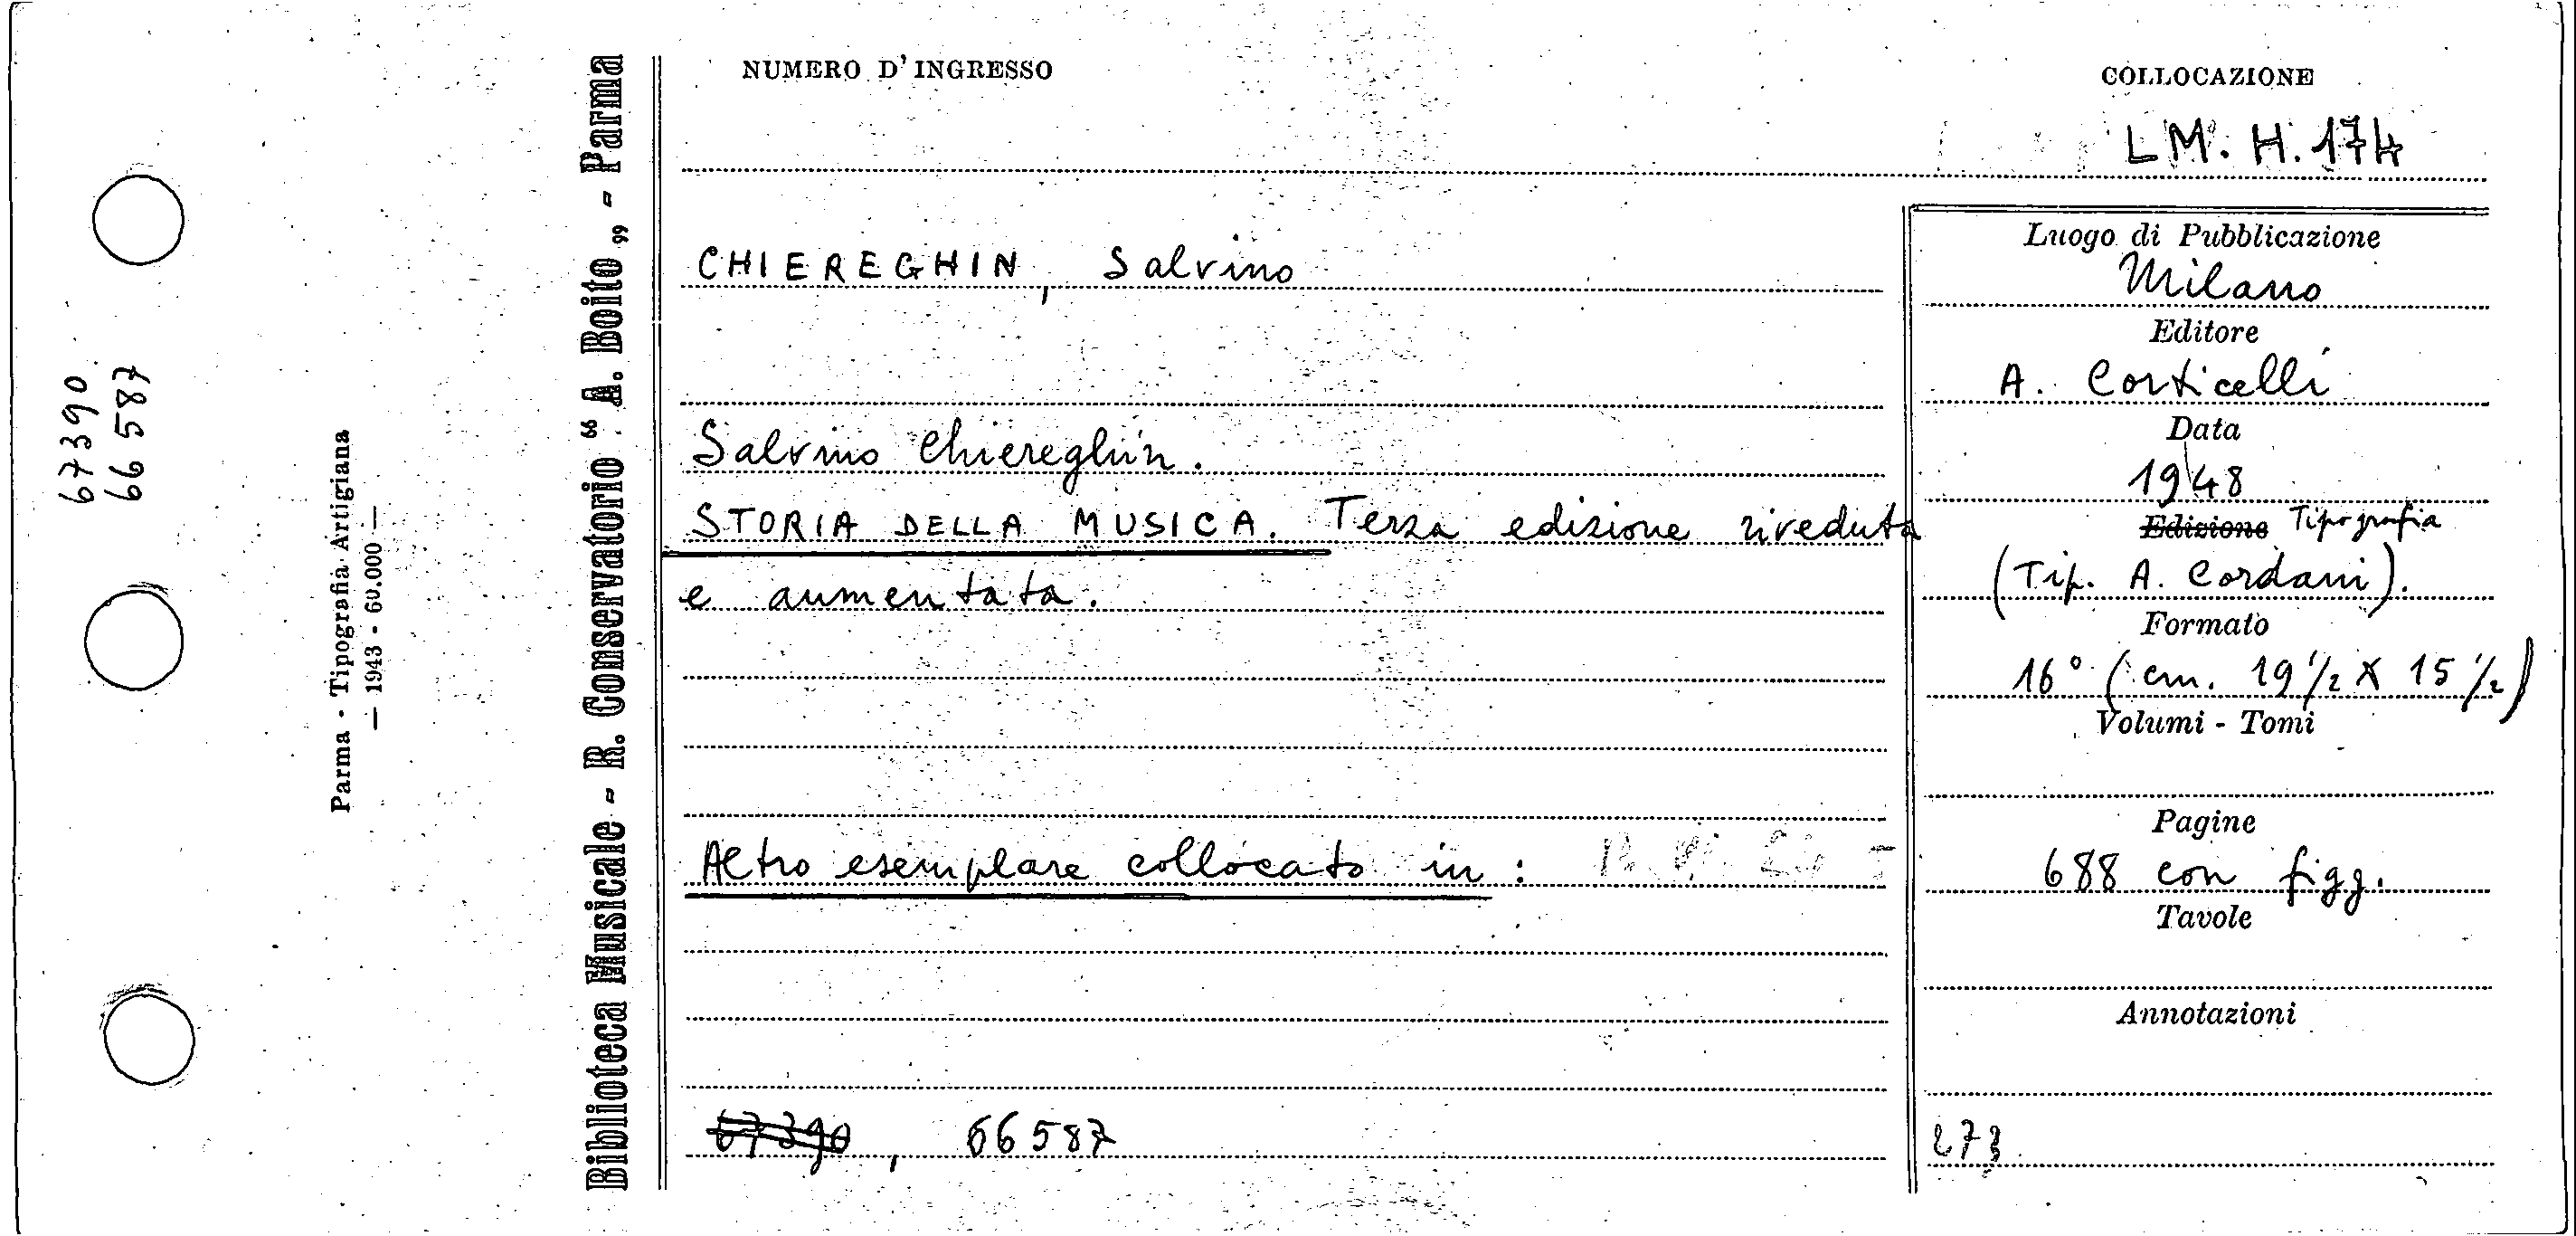 67390
66587
Parma - Tipografia Artigiana
— 1943 - 60.000 —
Biblioteca Musicale - R. Conservatorio "A. Boito„ - Parma
NUMERO D'INGRESSO
COLLOCAZIONE
LM. H. 174
CHIEREGHIN, Salvino
Salvino Chiereghin.
STORIA DELLA MUSICA. Terza edizione riveduta
e aumentata.
Altro esemplare collocato in :
67390, 66587
Luogo di Pubblicazione
Milano
Editore
A. Corticelli
Data
1948
Edizione Tipografia
(Tip. A. Cordani).
Formato
16° (cm. 19 1/2 X 15 1/2)
Volumi - Tomi
Pagine
688 con figg.
Tavole
Annotazioni
273